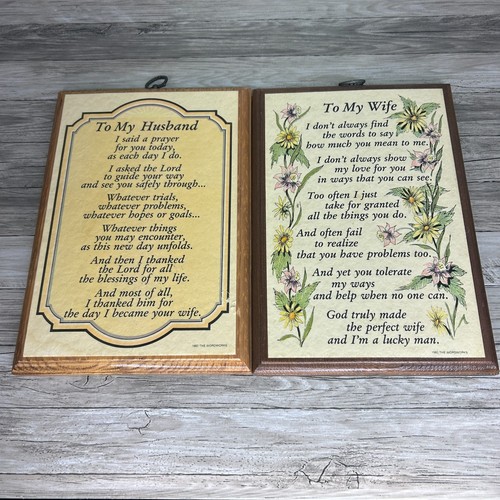 To My Husband
I said a prayer
for you today,
as each day I do.
I asked the Lord
to guide your way
and see you safely through...
Whatever trials,
whatever problems,
whatever hopes or goals...
Whatever things
you may encounter,
as this new day unfolds.
And then I thanked
the Lord for all
the blessings of my life.
And most of all,
I thanked him for
the day I became your wife.
To My Wife
I don't always find
the words to say
how much you mean to me.
I don't always show
my love for you
in ways that you can see.
Too often I just
take for granted
all the things you do.
And often fail
to realize
that you have problems too.
And yet you tolerate
my ways
and help when no one can.
God truly made
the perfect wife
and I'm a lucky man.